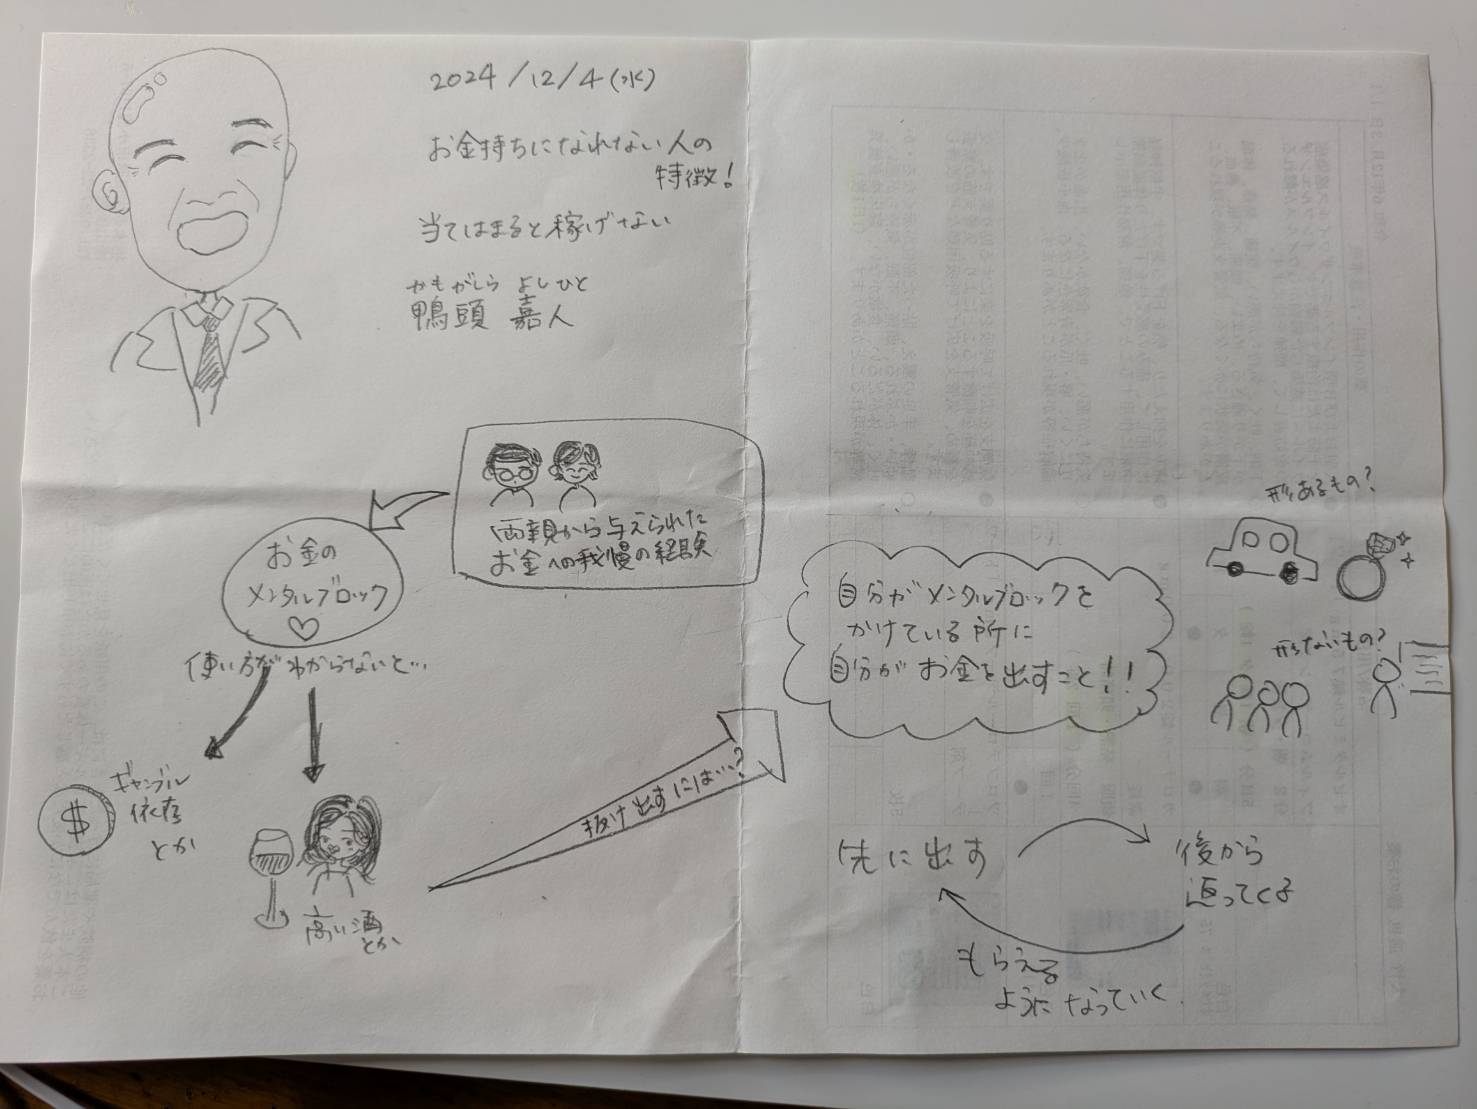 2024/12/4(水)
お金持ちになれない人の
特徴!
当てはまると稼げない
かもがしら よしひと
鴨頭 嘉人
両親から与えられた
お金への我慢の経験
お金の
メンタルブロック
使い方がわからないと…
ギャンブル
依存
とか
$
高い酒
とか
抜け出すには…?
自分がメンタルブロックを
かけている所に
自分がお金を出すこと!!
形あるもの?
形ないもの?
先に出す
後から
返ってくる
もらえる
ようになっていく